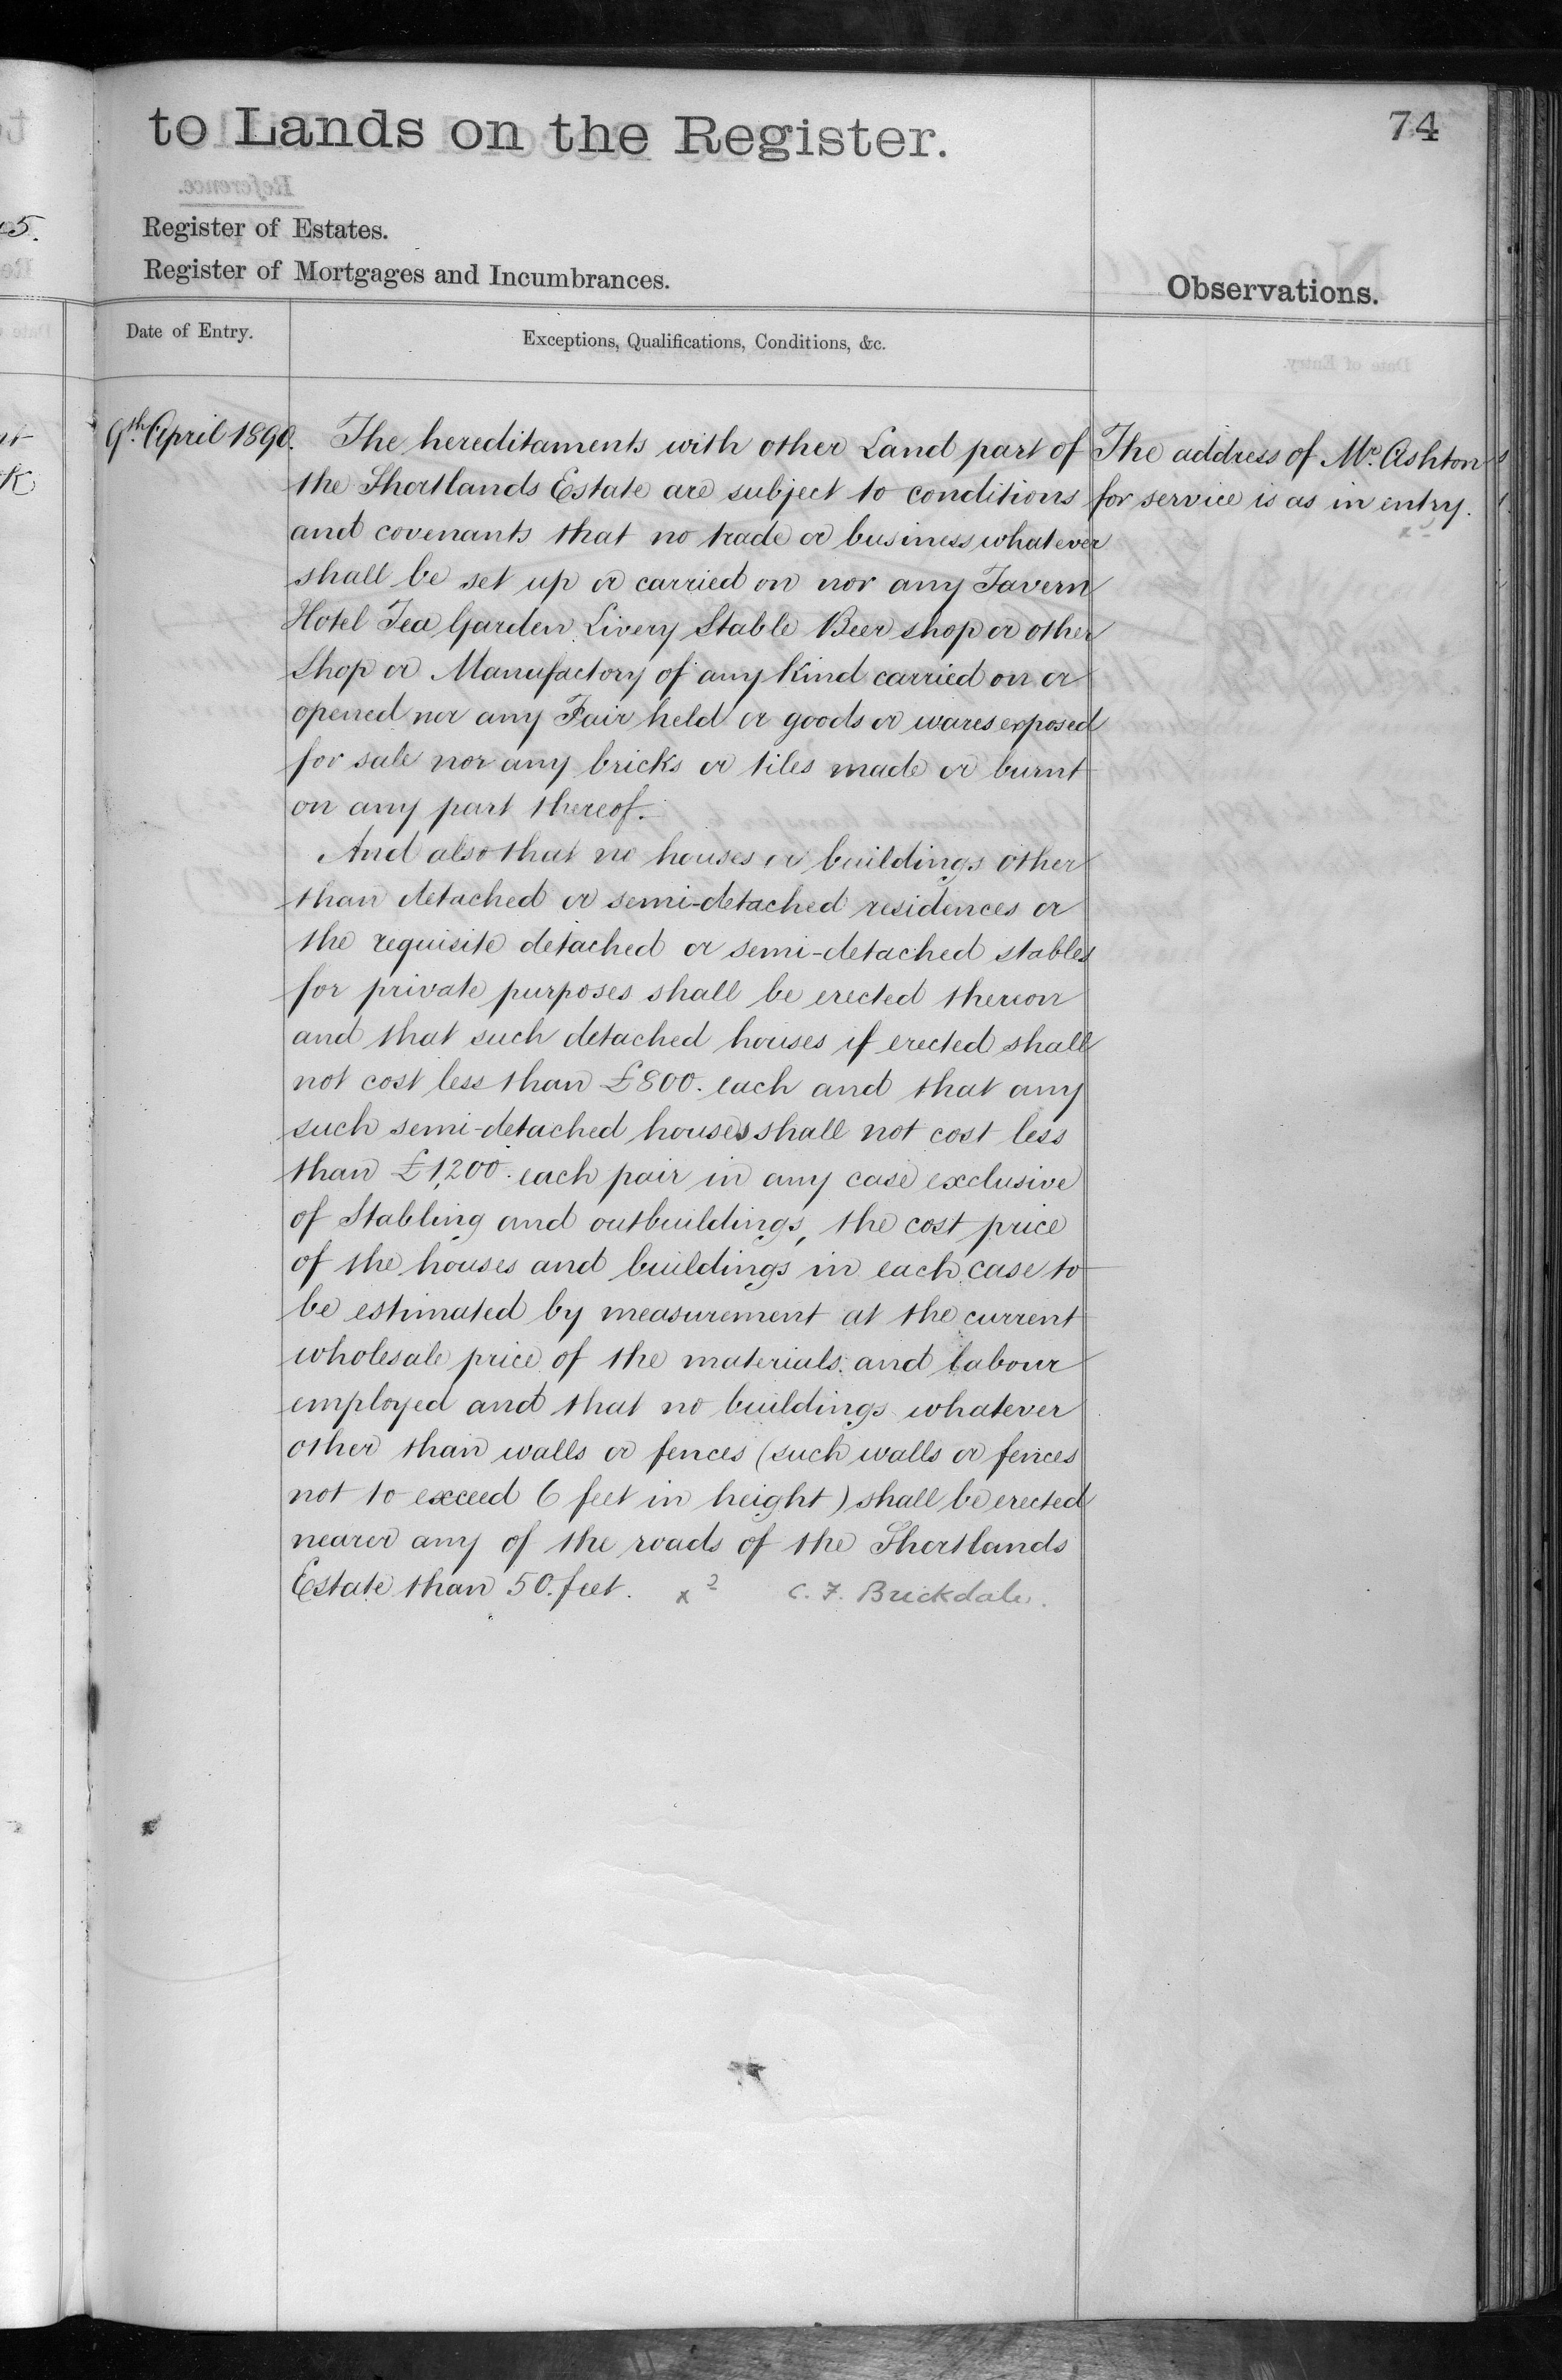 to Lands on the Register.
74
Register of Estates.
Register of Mortgages and Incumbrances.
Observations.
Date of Entry.
Exceptions, Qualifications, Conditions, &c.
9th. April 1890.
The hereditaments with other Land part of
the Shortlands Estate are subject to conditions
and covenants that no trade or business whatever
shall be set up or carried on nor any Tavern
Hotel Tea Garden Livery Stable Beer shop or other
Shop or Manufactory of any kind carried on or
opened nor any Fair held or goods or wares exposed
for sale nor any bricks or tiles made or burnt
on any part thereof.
And also that no houses or buildings other
than detached or semi-detached residences or
the requisite detached or semi-detached stables
for private purposes shall be erected thereon
and that such detached houses if erected shall
not cost less than £800. each and that any
such semi-detached houses shall not cost less
than £1,200. each pair in any case exclusive
of Stabling and outbuildings, the cost price
of the houses and buildings in each case to
be estimated by measurement at the current
wholesale price of the materials and labour
employed and that no buildings whatever
other than walls or fences (such walls or fences
not to exceed 6 feet in height) shall be erected
nearer any of the roads of the Shortlands
Estate than 50. feet. x 2 C. F. Brickdale.
The address of Mr. Ashton
for service is as in entry.